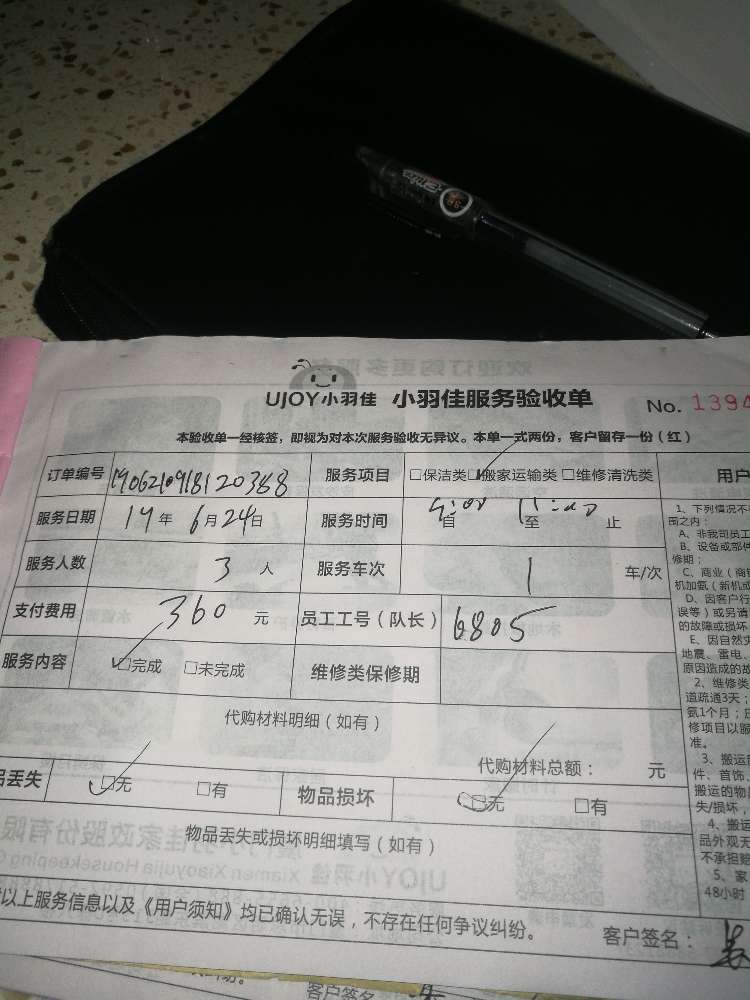 欢迎订购更多服务
UJOY小羽佳 小羽佳服务验收单 No. 1394
本验收单一经核签，即视为对本次服务验收无异议。本单一式两份，客户留存一份（红）
订单编号 服务项目 □保洁类 □搬家运输类 □维修清洗类 用户
服务日期 19年 6月24日 服务时间 自 至 止
服务人数 3 人 服务车次 1 车/次
支付费用 360 元 员工工号（队长） 6805
服务内容 □完成 □未完成 维修类保修期
代购材料明细（如有）
代购材料总额： 元
品丢失 □无 □有 物品损坏 □无 □有
物品丢失或损坏明细填写（如有）
以上服务信息以及《用户须知》均已确认无误，不存在任何争议纠纷。
客户签名：
1、下列情况不
围之内：
A、非我司员工
B、设备或部件
修期；
C、商业（商
机加氨（新机或
D、因客户行
误等）或另请
的故障或损坏
E、因自然灾
地震、雷电、
原因造成的故
2、维修类
道疏通3天；
氨1个月；
修项目以服
准。
3、搬运
件、首饰、
搬运的物
失/损坏，
4、搬运
品外观无
不承担赔
5、家
48小时
客户签名